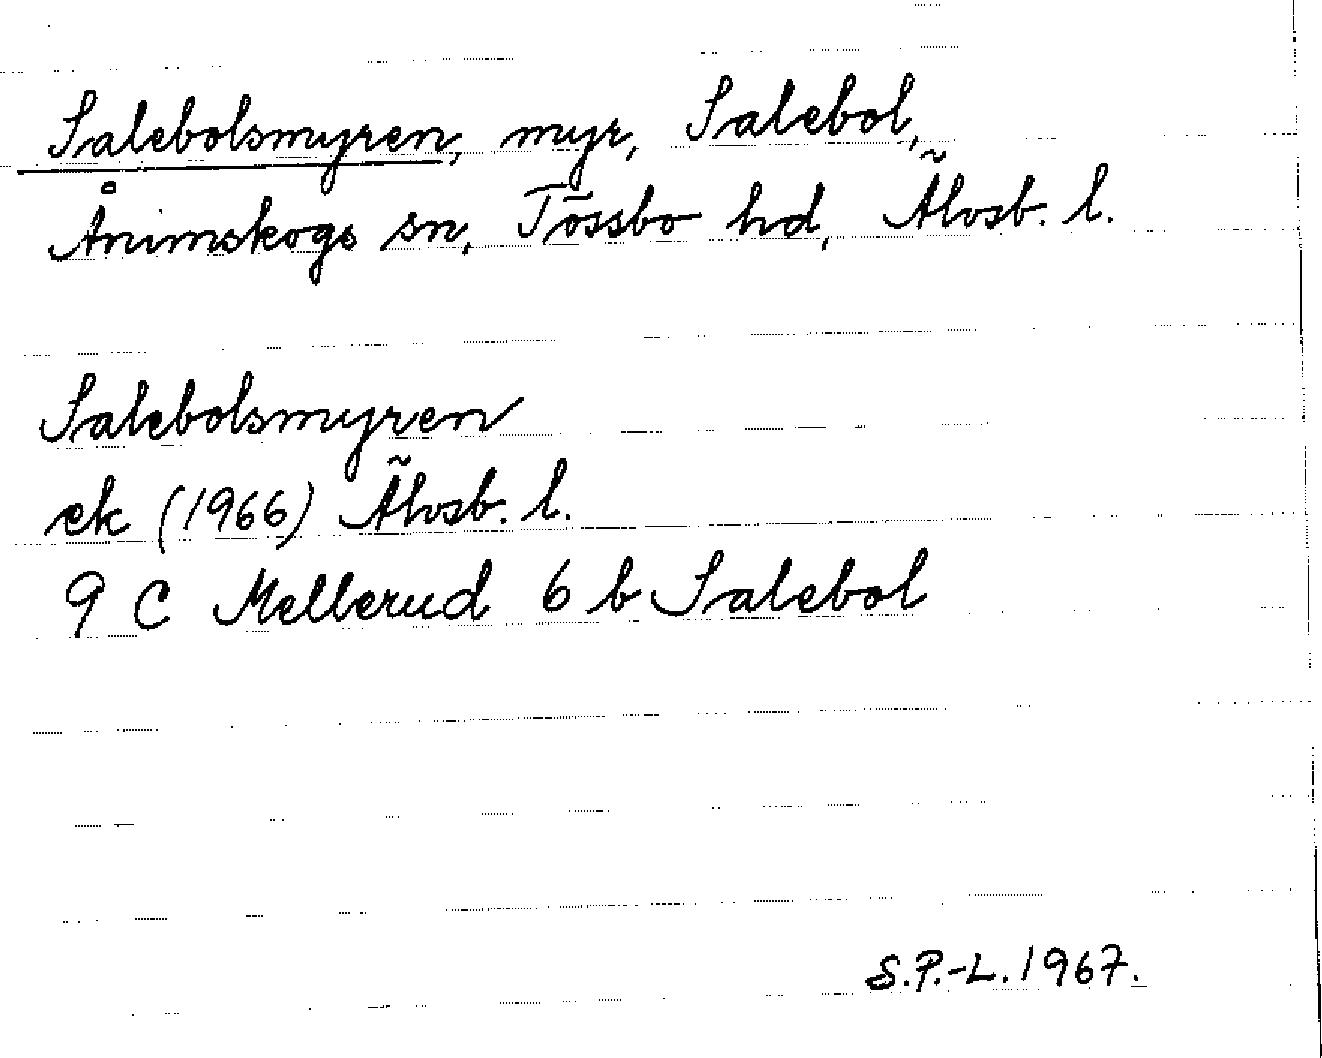 Salebolsmyren, myr, Salebol,
Ånimskogs sn, Tössbo hd, Älvsb. l.
Salebolsmyren
ek (1966) Älvsb. l.
9 C Mellerud 6 b Salebol
S.P.-L. 1967.